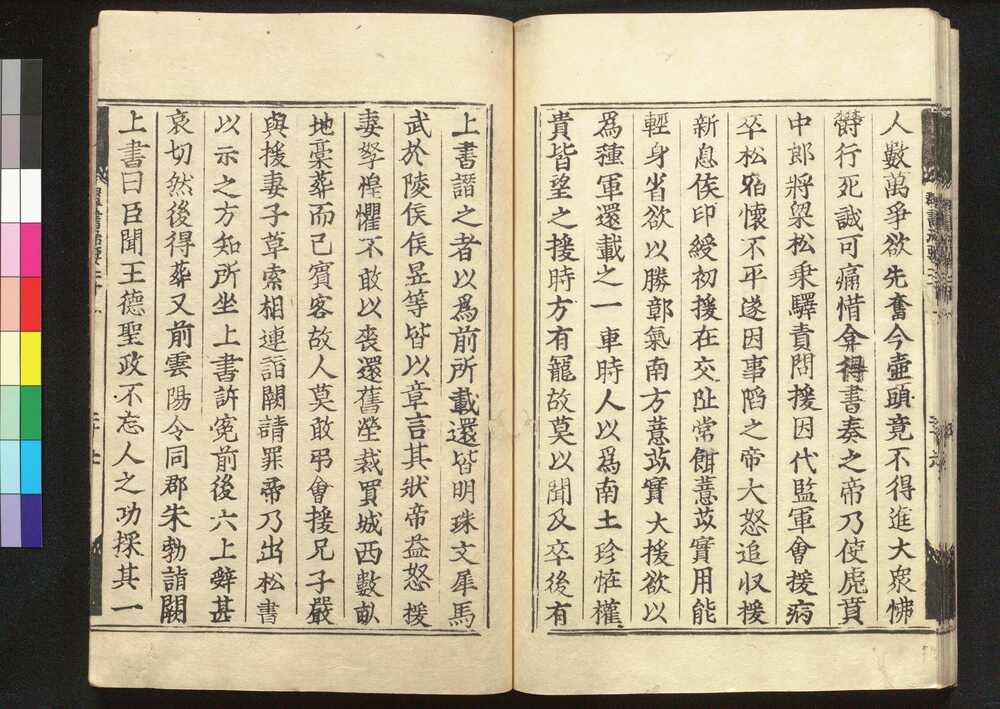 人數萬爭欲先奮今壺頭竟不得進大衆怫
欝行死誠可痛惜弇得書奏之帝乃使虎賁
中郎將梁松乘驛責問援因代監軍會援病
卒松宿懷不平遂因事陷之帝大怒追収援
新息侯印綬初援在交阯常餌薏苡實用能
輕身省欲以勝鄣氣南方薏苡實大援欲以
爲種軍還載之一車時人以爲南土珍恠權
貴皆望之援時方有寵故莫以聞及卒後有
上書譖之者以爲前所載還皆明珠文犀馬
武於陵侯侯昱等皆以章言其狀帝益怒援
妻孥惶懼不敢以喪還舊塋裁買城西數畝
地藁葬而已賓客故人莫敢弔會援兄子嚴
與援妻子草索相連詣闕請罪帝乃出松書
以示之方知所坐上書訴冤前後六上辭甚
哀切然後得葬又前雲陽令同郡朱勃詣闕
上書曰臣聞王德聖政不忘人之功採其一